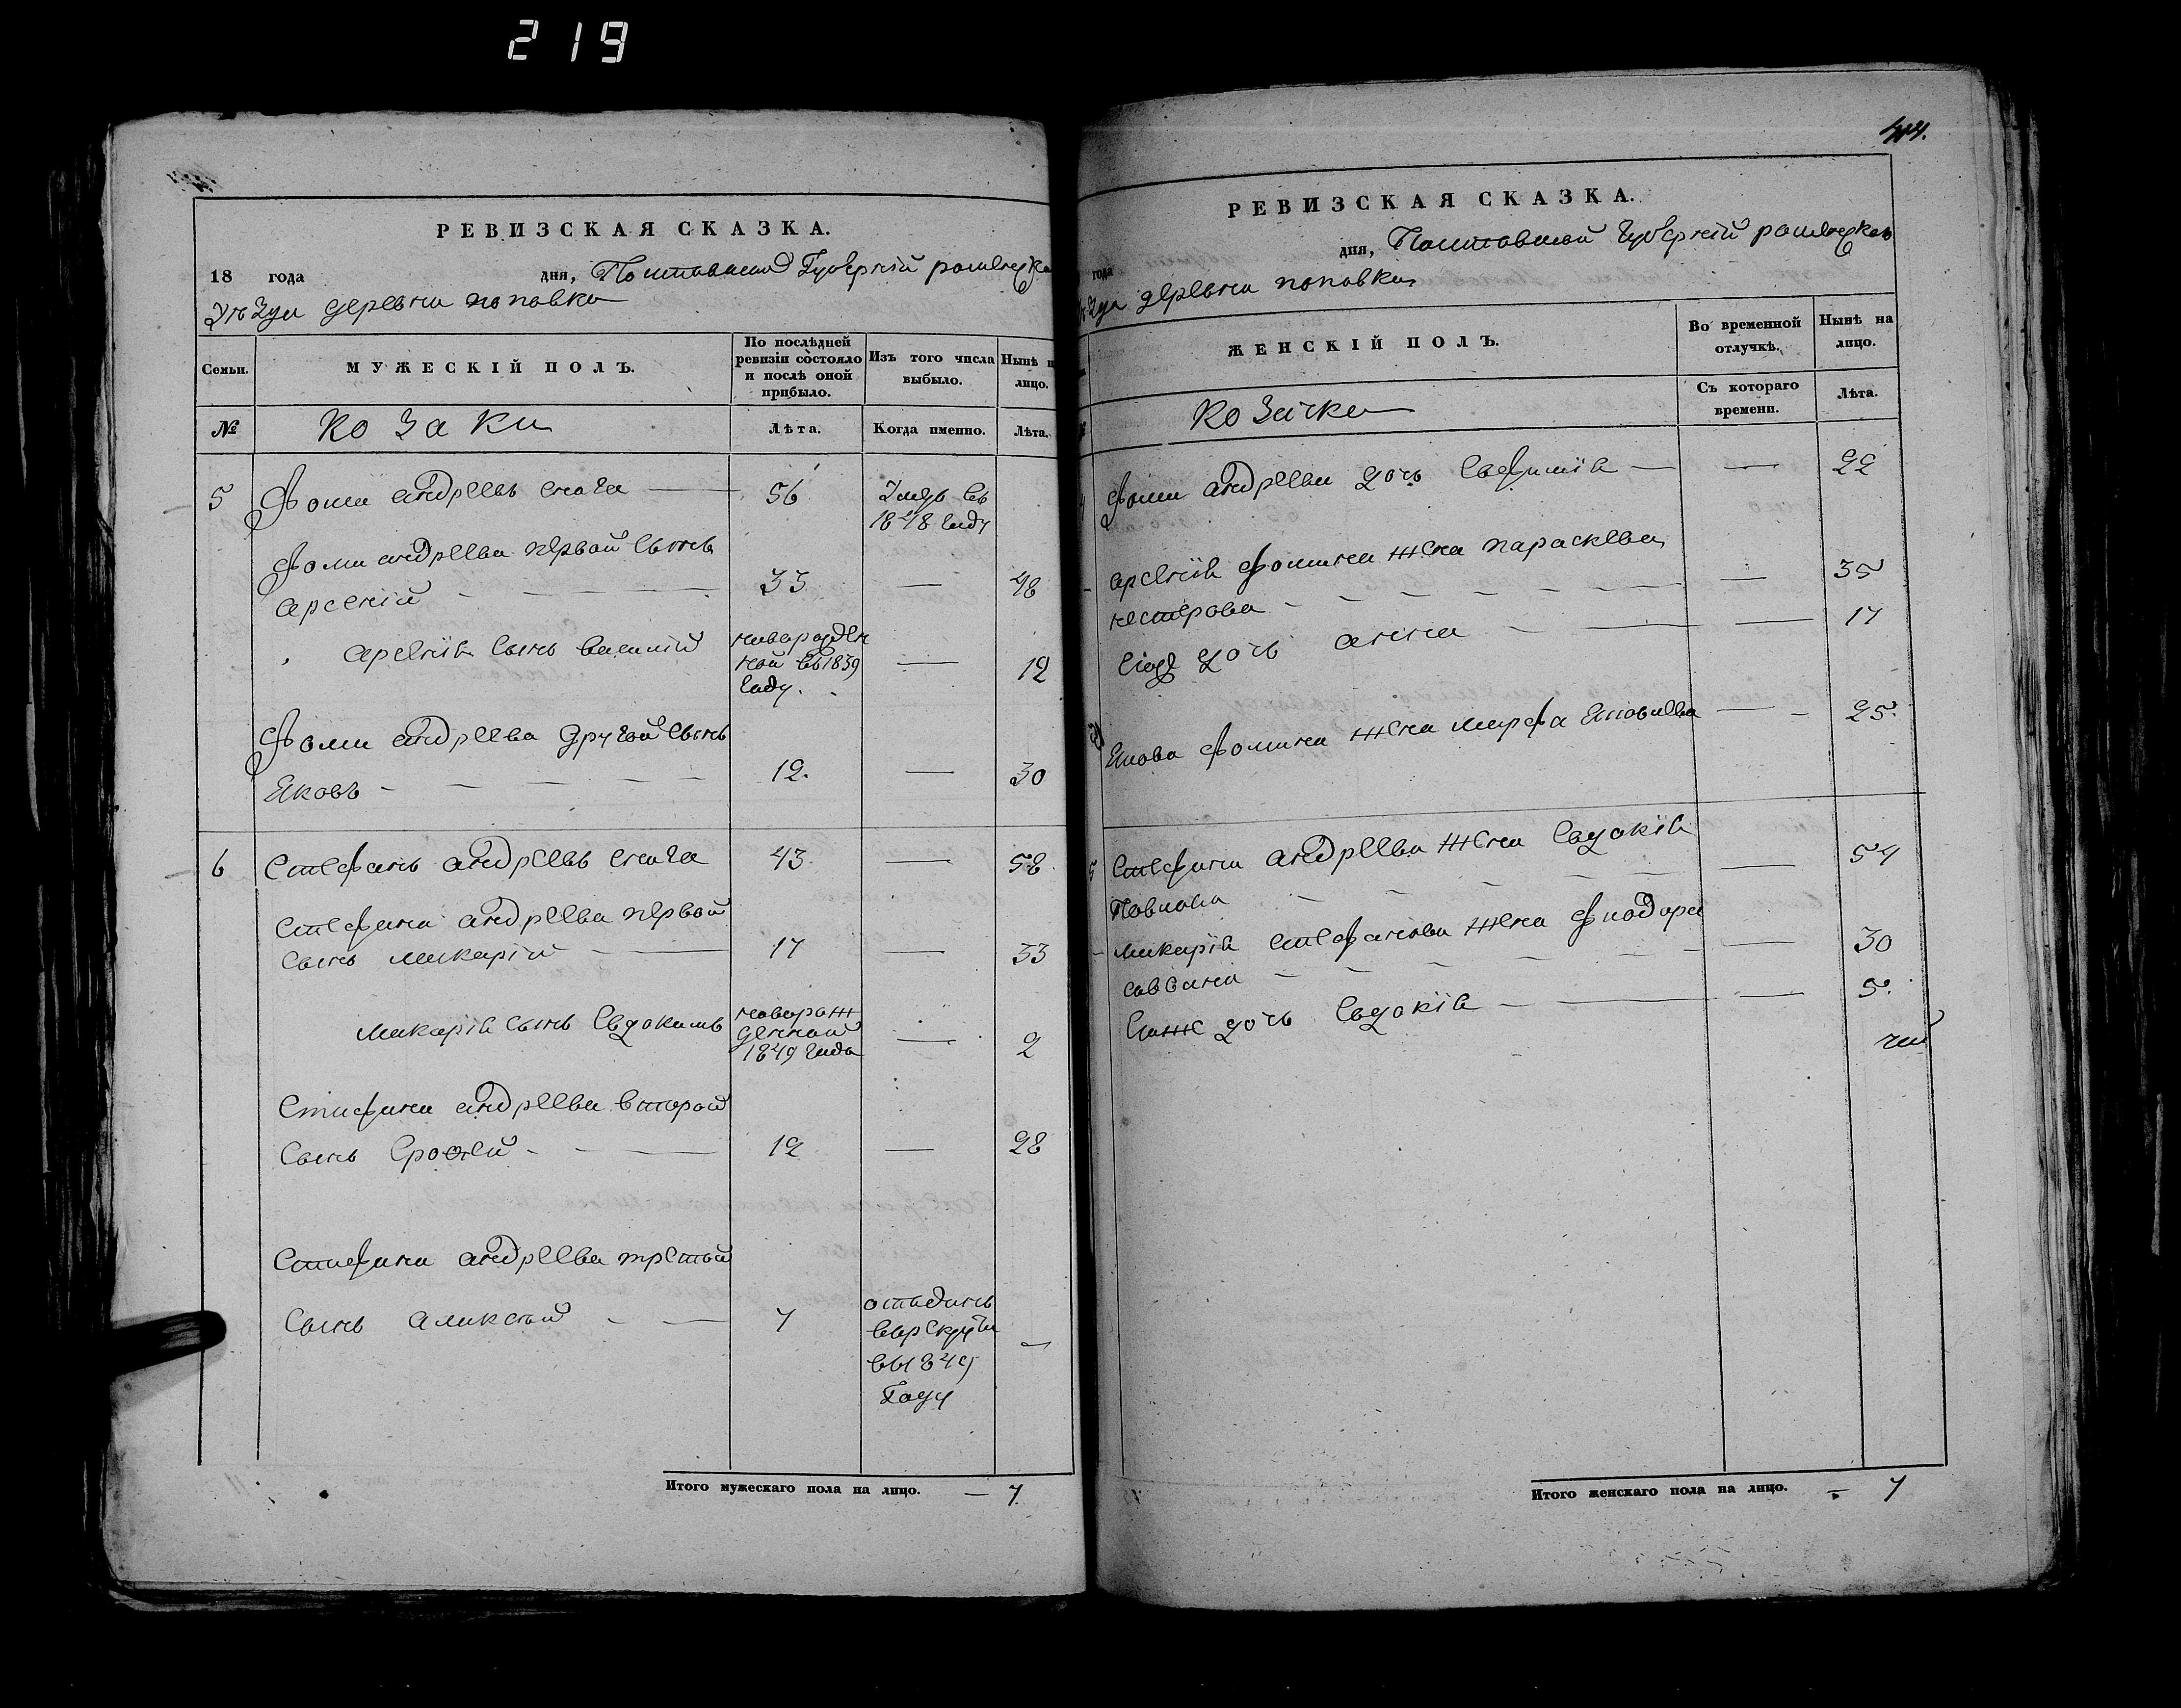 219
РЕВИЗСКАЯ СКАЗКА.
18 года дня, Полтавской Губерніи
деревни поповки
Семьи.
МУЖЕСКІЙ ПОЛЪ.
По послѣдней ревизіи состояло и послѣ оной прибыло.
Изъ того числа выбыло.
Нынѣ на лицо.
№
козаки
Лѣта.
Когда именно.
Лѣта.
5 Фома андреевъ снага — 56 Умеръ въ
1848 году
Фомы андреева первой сынъ
арсеній — 33 — 48
арсенія сынъ василій новорожден
ной въ 1839 — 12
году.
Фомы андреева другой сынъ
Яковъ — 12. — 30
6 Стефанъ андреевъ снага 43 — 58
Стефана андреева первой
сынъ макарій — 17 — 33
макарія сынъ Евдокимъ новорож
денной — 2
1849 года
Стефана андреева второй
сынъ Ерофей — 12 — 28
Стефана андреева третый
сынъ алексей — 7 отъданъ —
въ рекруты
въ 1849
Году
Итого мужескаго пола на лицо. — 7.
44.
РЕВИЗСКАЯ СКАЗКА.
года дня, Полтавской Губерніи
деревни поповки
ЖЕНСКІЙ ПОЛЪ.
Во временной отлучкѣ.
Нынѣ на лицо.
козачки
Съ котораго времени.
Лѣта.
Фомы андреева дочь Евфимія — — 22
арсенія фомина жена параскева
нестерова — — 35
дочь анна — — 17
Якова фомина жена марфа Яковлева — 25.
5 Стефана андреева жена Евдокія
Павлова — — 54
макарія стефанова жена феодора
саввина — — 30
Егоже дочь Евдокія — — 5.
Итого женскаго пола на лицо. — 7